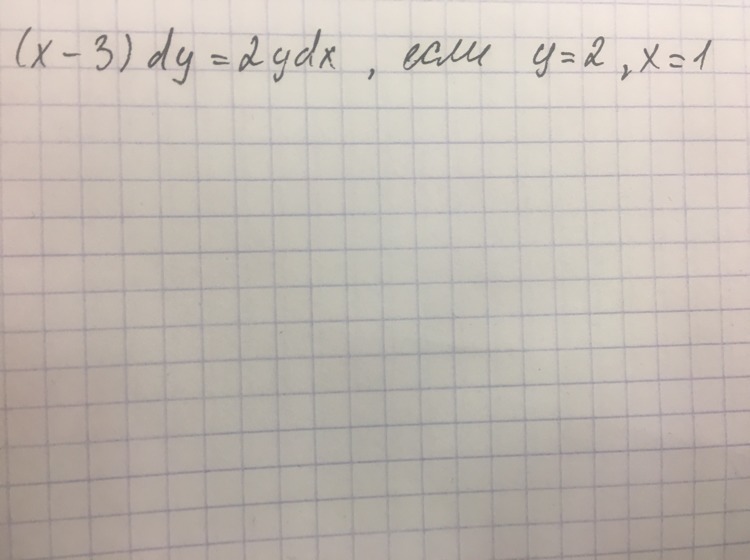 (x-3) dy = 2ydx , если y=2, x=1